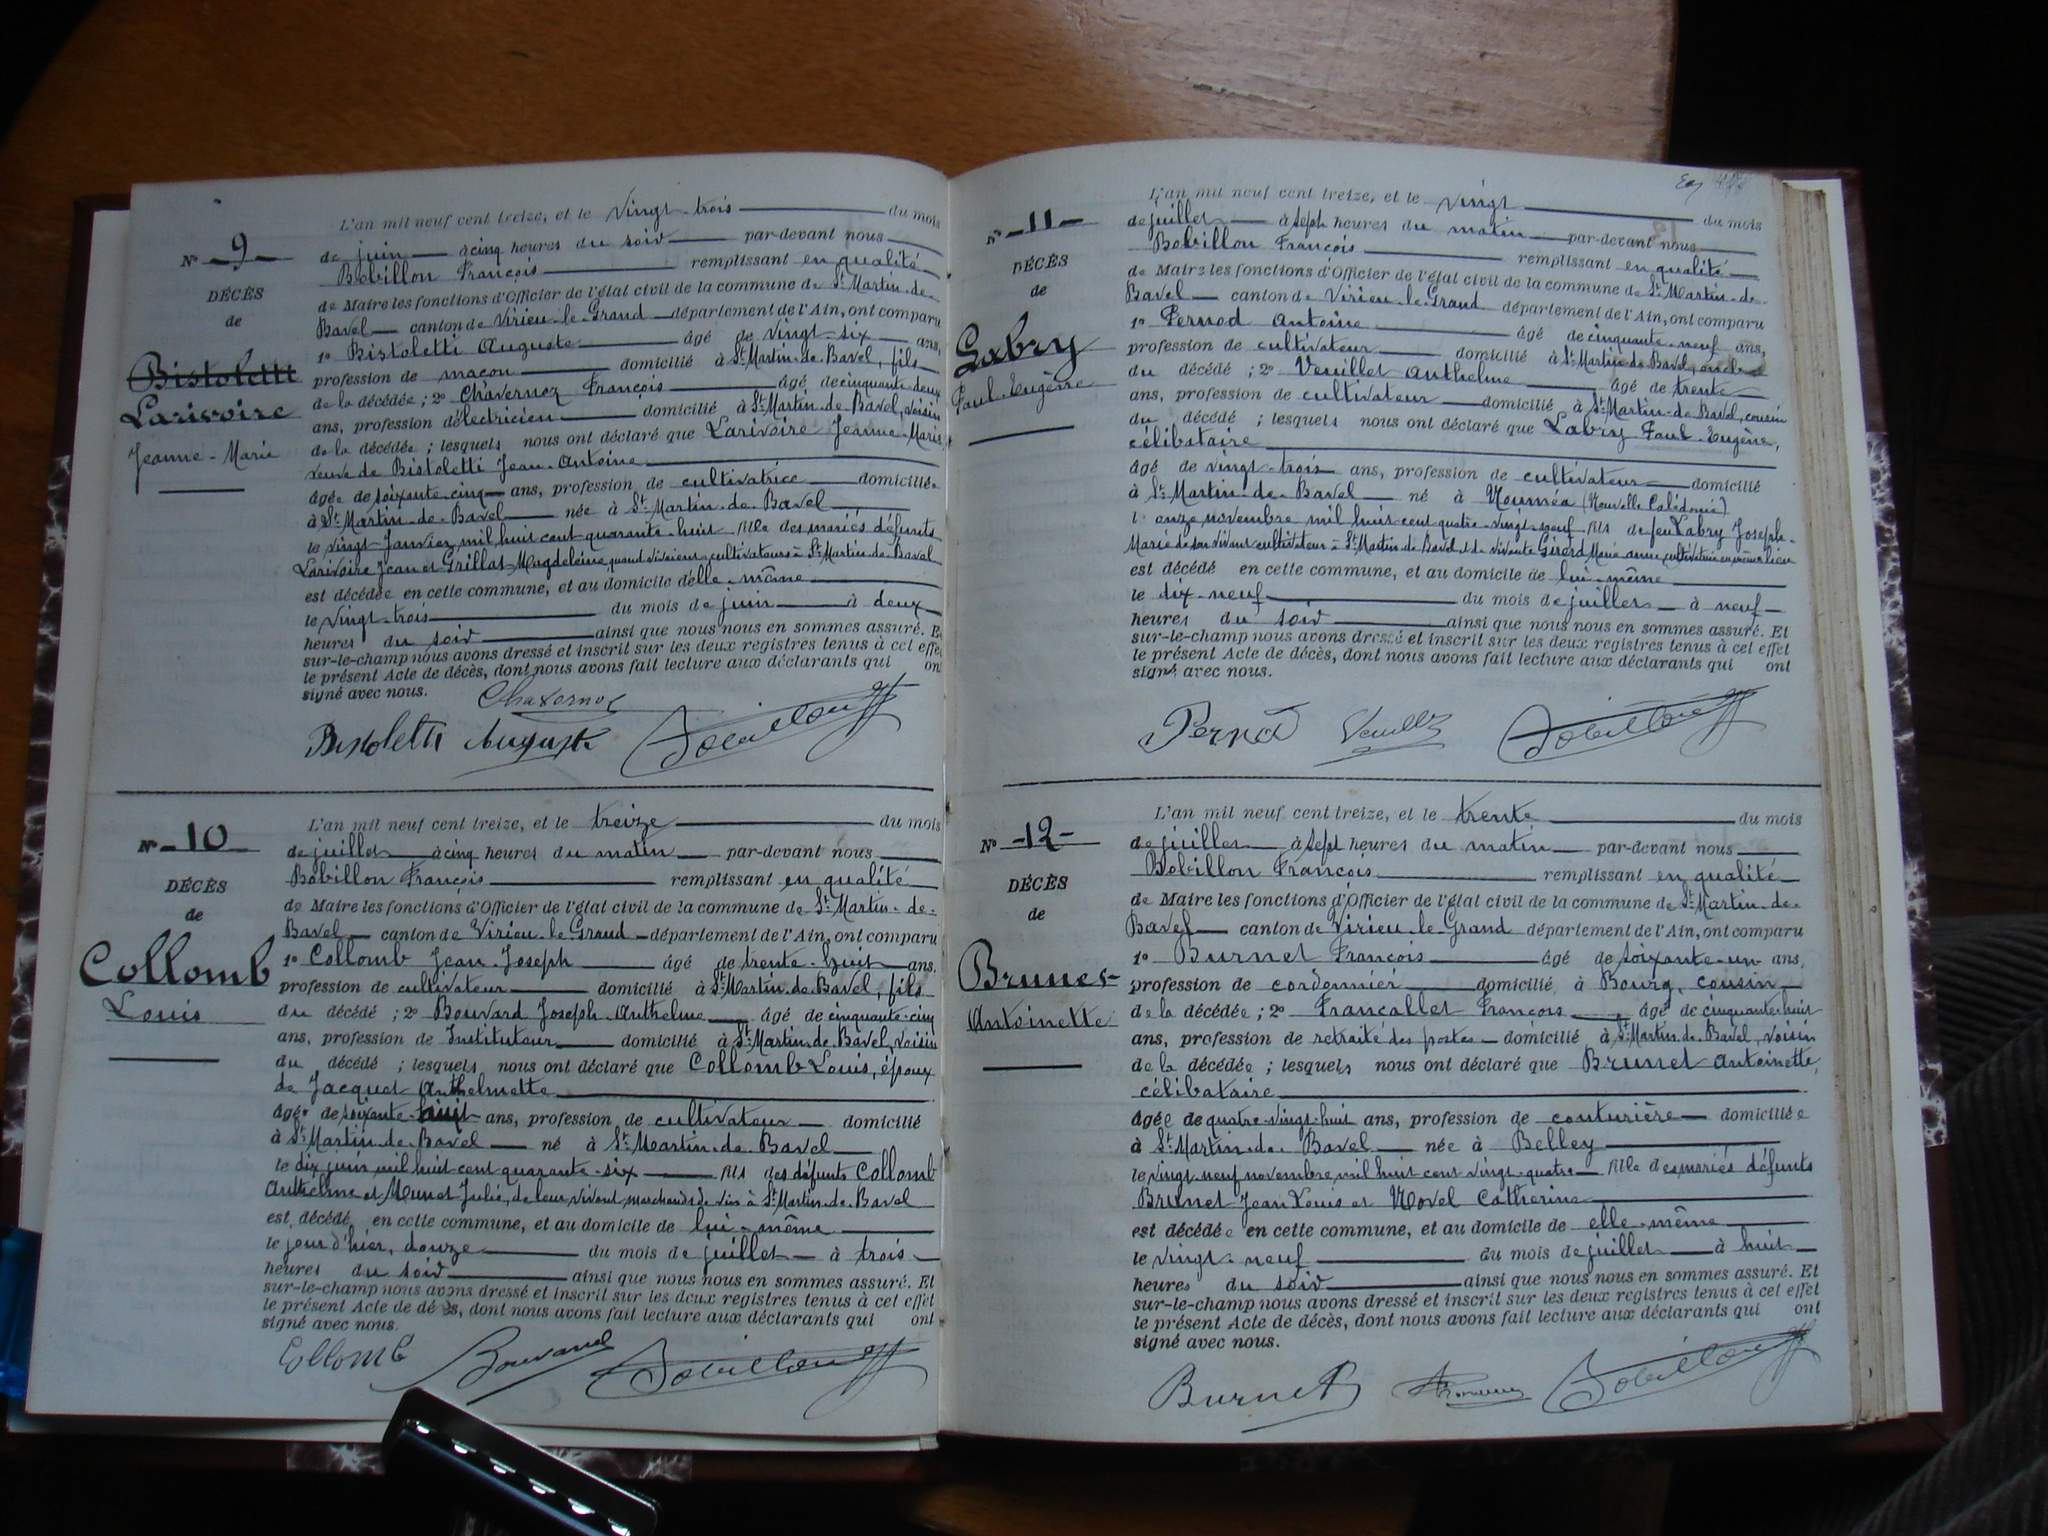 N° 9
DÉCÈS
de
Bistoletti
Larivoire
Jeanne-Marie
L'an mil neuf cent treize, et le vingt-trois du mois
de juin à cinq heures du soir par-devant nous
Bobillon François remplissant en qualité
de Maire les fonctions d'Officier de l'état civil de la commune de St Martin-de-
Bavel canton de Virieu-le-Grand département de l'Ain, ont comparu
1° Bistoletti Auguste âgé de vingt-six ans,
profession de maçon domicilié à St Martin-de-Bavel, fils
de la décédée ; 2° Chavernoz François âgé de cinquante-deux
ans, profession d'électricien domicilié à St Martin-de-Bavel, voisin
de la décédée ; lesquels nous ont déclaré que Larivoire Jeanne-Marie
veuve de Bistoletti Jean-Antoine
âgée de soixante-cinq ans, profession de cultivatrice domiciliée
à St Martin-de-Bavel née à St Martin-de-Bavel
le vingt Janvier mil huit cent quarante-huit fille des mariés défunts
Larivoire Jean et Grillat Magdeleine quand vivaient cultivateurs à St Martin-de-Bavel
est décédée en cette commune, et au domicile d'elle-même
le vingt-trois du mois de juin à deux
heures du soir ainsi que nous nous en sommes assuré. Et
sur-le-champ nous avons dressé et inscrit sur les deux registres tenus à cet effet
le présent Acte de décès, dont nous avons fait lecture aux déclarants qui ont
signé avec nous.
Chavernoz
Bistoletti Auguste Bobillon
N° 10
DÉCÈS
de
Collomb
Louis
L'an mil neuf cent treize, et le treize du mois
de juillet à cinq heures du matin par-devant nous
Bobillon François remplissant en qualité
de Maire les fonctions d'Officier de l'état civil de la commune de St Martin-de-
Bavel canton de Virieu-le-Grand département de l'Ain, ont comparu
1° Collomb Jean-Joseph âgé de trente-huit ans,
profession de cultivateur domicilié à St Martin-de-Bavel, fils
du décédé ; 2° Bouvard Joseph-Anthelme âgé de cinquante-cinq
ans, profession de Instituteur domicilié à St Martin-de-Bavel, voisin
du décédé ; lesquels nous ont déclaré que Collomb Louis, époux
de Jacquet Anthelmette
âgé de soixante-huit ans, profession de cultivateur domicilié
à St Martin-de-Bavel né à St Martin-de-Bavel
le dix juin mil huit cent quarante-six fils des défunts Collomb
Anthelme et Munet Julie, de leur vivant marchands de vin à St Martin-de-Bavel
est décédé en cette commune, et au domicile de lui-même
le jour d'hier, douze du mois de juillet à trois
heures du soir ainsi que nous nous en sommes assuré. Et
sur-le-champ nous avons dressé et inscrit sur les deux registres tenus à cet effet
le présent Acte de décès, dont nous avons fait lecture aux déclarants qui ont
signé avec nous.
Collomb Bouvard Bobillon
N° 11
DÉCÈS
de
Labry
Paul-Eugène
L'an mil neuf cent treize, et le vingt du mois
de juillet à sept heures du matin par-devant nous
Bobillon François remplissant en qualité
de Maire les fonctions d'Officier de l'état civil de la commune de St Martin-de-
Bavel canton de Virieu-le-Grand département de l'Ain, ont comparu
1° Pernod Antoine âgé de cinquante-neuf ans,
profession de cultivateur domicilié à St Martin-de-Bavel, oncle
du décédé ; 2° Veuillet Anthelme âgé de trente
ans, profession de cultivateur domicilié à St Martin-de-Bavel, cousin
du décédé ; lesquels nous ont déclaré que Labry Paul-Eugène,
célibataire
âgé de vingt-trois ans, profession de cultivateur domicilié
à St Martin-de-Bavel né à Nouméa (Nouvelle Calédonie)
le onze novembre mil huit cent quatre-vingt-neuf fils de feu Labry Joseph-
Marie de son vivant cultivateur à St Martin de Bavel et de vivante Girerd Marie-Anne cultivatrice en même lieu
est décédé en cette commune, et au domicile de lui-même
le dix-neuf du mois de juillet à neuf
heures du soir ainsi que nous nous en sommes assuré. Et
sur-le-champ nous avons dressé et inscrit sur les deux registres tenus à cet effet
le présent Acte de décès, dont nous avons fait lecture aux déclarants qui ont
signé avec nous.
Pernod Veuillet Bobillon
N° 12
DÉCÈS
de
Brunet
Antoinette
L'an mil neuf cent treize, et le trente du mois
de juillet à sept heures du matin par-devant nous
Bobillon François remplissant en qualité
de Maire les fonctions d'Officier de l'état civil de la commune de St Martin-de-
Bavel canton de Virieu-le-Grand département de l'Ain, ont comparu
1° Burnet François âgé de soixante-un ans,
profession de cordonnier domicilié à Bourg, cousin
de la décédée ; 2° Francallet François âgé de cinquante-huit
ans, profession de retraité des postes domicilié à St Martin-de-Bavel, voisin
de la décédée ; lesquels nous ont déclaré que Brunet Antoinette,
célibataire
âgée de quatre-vingt-huit ans, profession de couturière domiciliée
à St Martin-de-Bavel née à Belley
le vingt-neuf novembre mil huit cent vingt-quatre fille des mariés défunts
Brunet Jean Louis et Novel Catherine
est décédée en cette commune, et au domicile de elle-même
le vingt-neuf du mois de juillet à huit
heures du soir ainsi que nous nous en sommes assuré. Et
sur-le-champ nous avons dressé et inscrit sur les deux registres tenus à cet effet
le présent Acte de décès, dont nous avons fait lecture aux déclarants qui ont
signé avec nous.
Burnet Bobillon